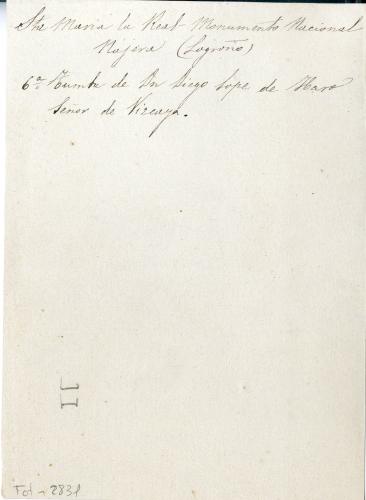 Sta Maria la Real Monumento Nacional
Najera (Logroño)
6ª Tumba de Dn Diego Lope de Haro
Señor de Vizcaya.
II
Fot-2831